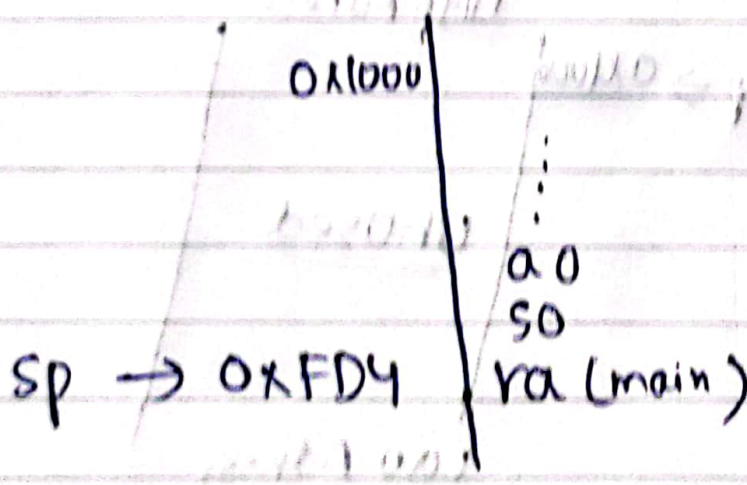 0x1000
⋮
a0
s0
sp → 0xFD4 ra (main)